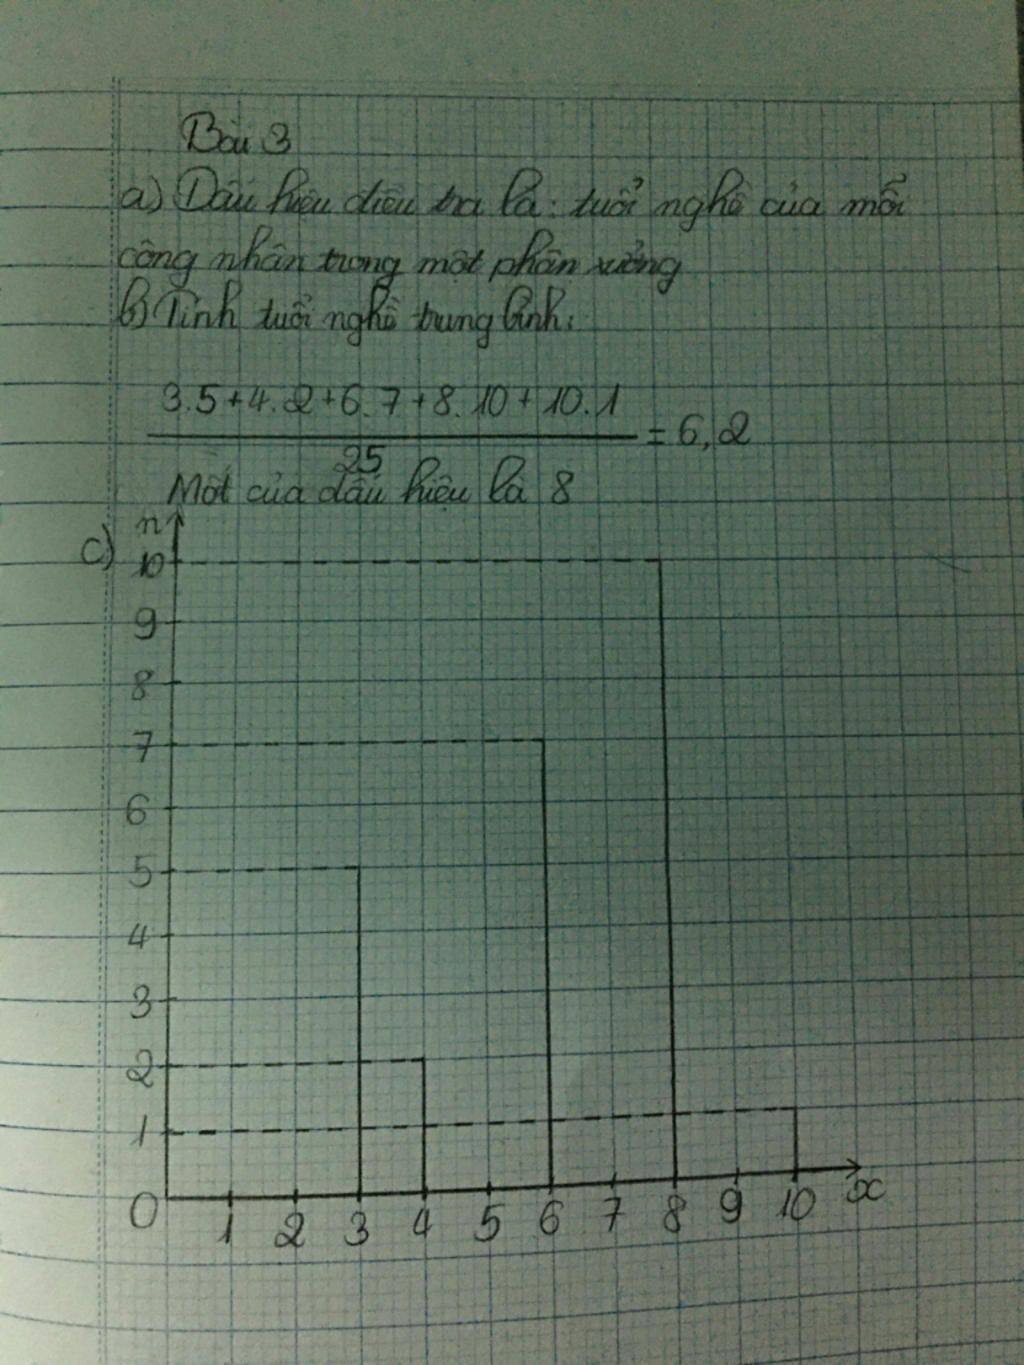 Bài 3
a) Dấu hiệu điều tra là: tuổi nghề của mỗi
công nhân trong một phân xưởng
b) Tính tuổi nghề trung bình:
3.5+4.2+6.7+8.10+10.1
= 6,2
25
Mốt của dấu hiệu là 8
n
c)
10
9
8
7
6
5
4
3
2
1
0 1 2 3 4 5 6 7 8 9 10 x